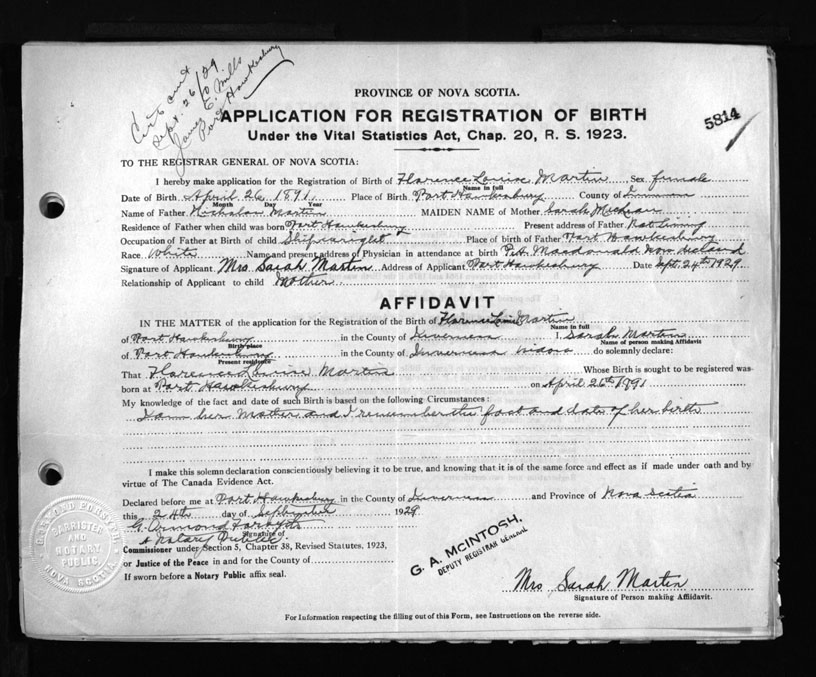 Cert. sent
Sept. 26/29
James E. Mills
Port Hawkesbury
5814
PROVINCE OF NOVA SCOTIA.
APPLICATION FOR REGISTRATION OF BIRTH
Under the Vital Statistics Act, Chap. 20, R. S. 1923.
TO THE REGISTRAR GENERAL OF NOVA SCOTIA:
I hereby make application for the Registration of Birth of Florence Louise Martin Sex female
Name in full
Date of Birth April 26 1891 Place of Birth Port Hawkesbury County of
Month Day Year
Name of Father Nicholas Martin MAIDEN NAME of Mother Sarah
Residence of Father when child was born Port Hawkesbury Present address of Father Not Living
Occupation of Father at Birth of child Shipwright Place of birth of Father Port Hawkesbury
Race White Name and present address of Physician in attendance at birth P.A. Macdonald
Signature of Applicant Mrs Sarah Martin Address of Applicant Port Hawkesbury Date Sept. 24th 1929
Relationship of Applicant to child Mother
AFFIDAVIT
IN THE MATTER of the application for the Registration of the Birth of Florence Louise Martin
Name in full
of Port Hawkesbury in the County of Inverness I, Sarah Martin
Birth place Name of person making Affidavit
of Port Hawkesbury in the County of Inverness do solemnly declare:
Present residence
That Florence Louise Martin Whose Birth is sought to be registered was
born at Port Hawkesbury on April 26th 1891
My knowledge of the fact and date of such Birth is based on the following Circumstances:
I am her Mother and I remember the fact and date of her birth
I make this solemn declaration conscientiously believing it to be true, and knowing that it is of the same force and effect as if made under oath and by
virtue of The Canada Evidence Act.
Declared before me at Port Hawkesbury in the County of Inverness and Province of Nova Scotia
this 24th day of September 1929
G. Ormond Forsyth
Signature of
A Notary Public
Commissioner under Section 5, Chapter 38, Revised Statutes, 1923,
or Justice of the Peace in and for the County of
If sworn before a Notary Public affix seal.
BARRISTER
AND
NOTARY
PUBLIC
NOVA SCOTIA
G. A. McINTOSH,
DEPUTY REGISTRAR GENERAL
Mrs Sarah Martin
Signature of Person making Affidavit.
For Information respecting the filling out of this Form, see Instructions on the reverse side.